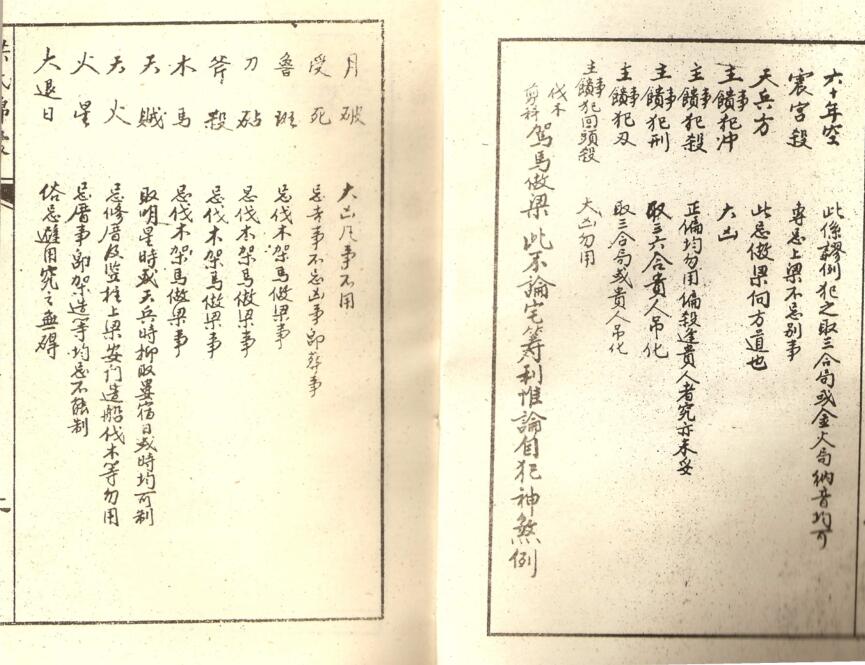 六十年空 此係謬例犯之取三合局或金火局納音均可
宸宮殺 專忌上梁不忌別事
天兵方 此忌做梁向方道也
主事饋犯冲 大凶
主事饋犯殺 正偏均勿用偏殺逢貴人者究亦未妥
主事饋犯刑 取三六合貴人吊化
主事饋犯刃 取三合局或貴人吊化
主事饋犯回頭殺 大凶勿用
伐木
剪料 駕馬做梁 此不論宅筭利惟論自犯神煞例
月破 大凶凡事不用
受死 忌吉事不忌凶事即葬事
魯班 忌伐木架馬做梁事
刀砧 忌伐木架馬做梁事
斧殺 忌伐木架馬做梁事
木馬 忌伐木架馬做梁事
天賊 取明星時或天兵時柳取婁宿日或時均可制
天火 忌修厝及竪柱上梁安门造船伐木等勿用
火星 忌厝事即架造等均忌不能制
大退日 俗忌避用究之無碍